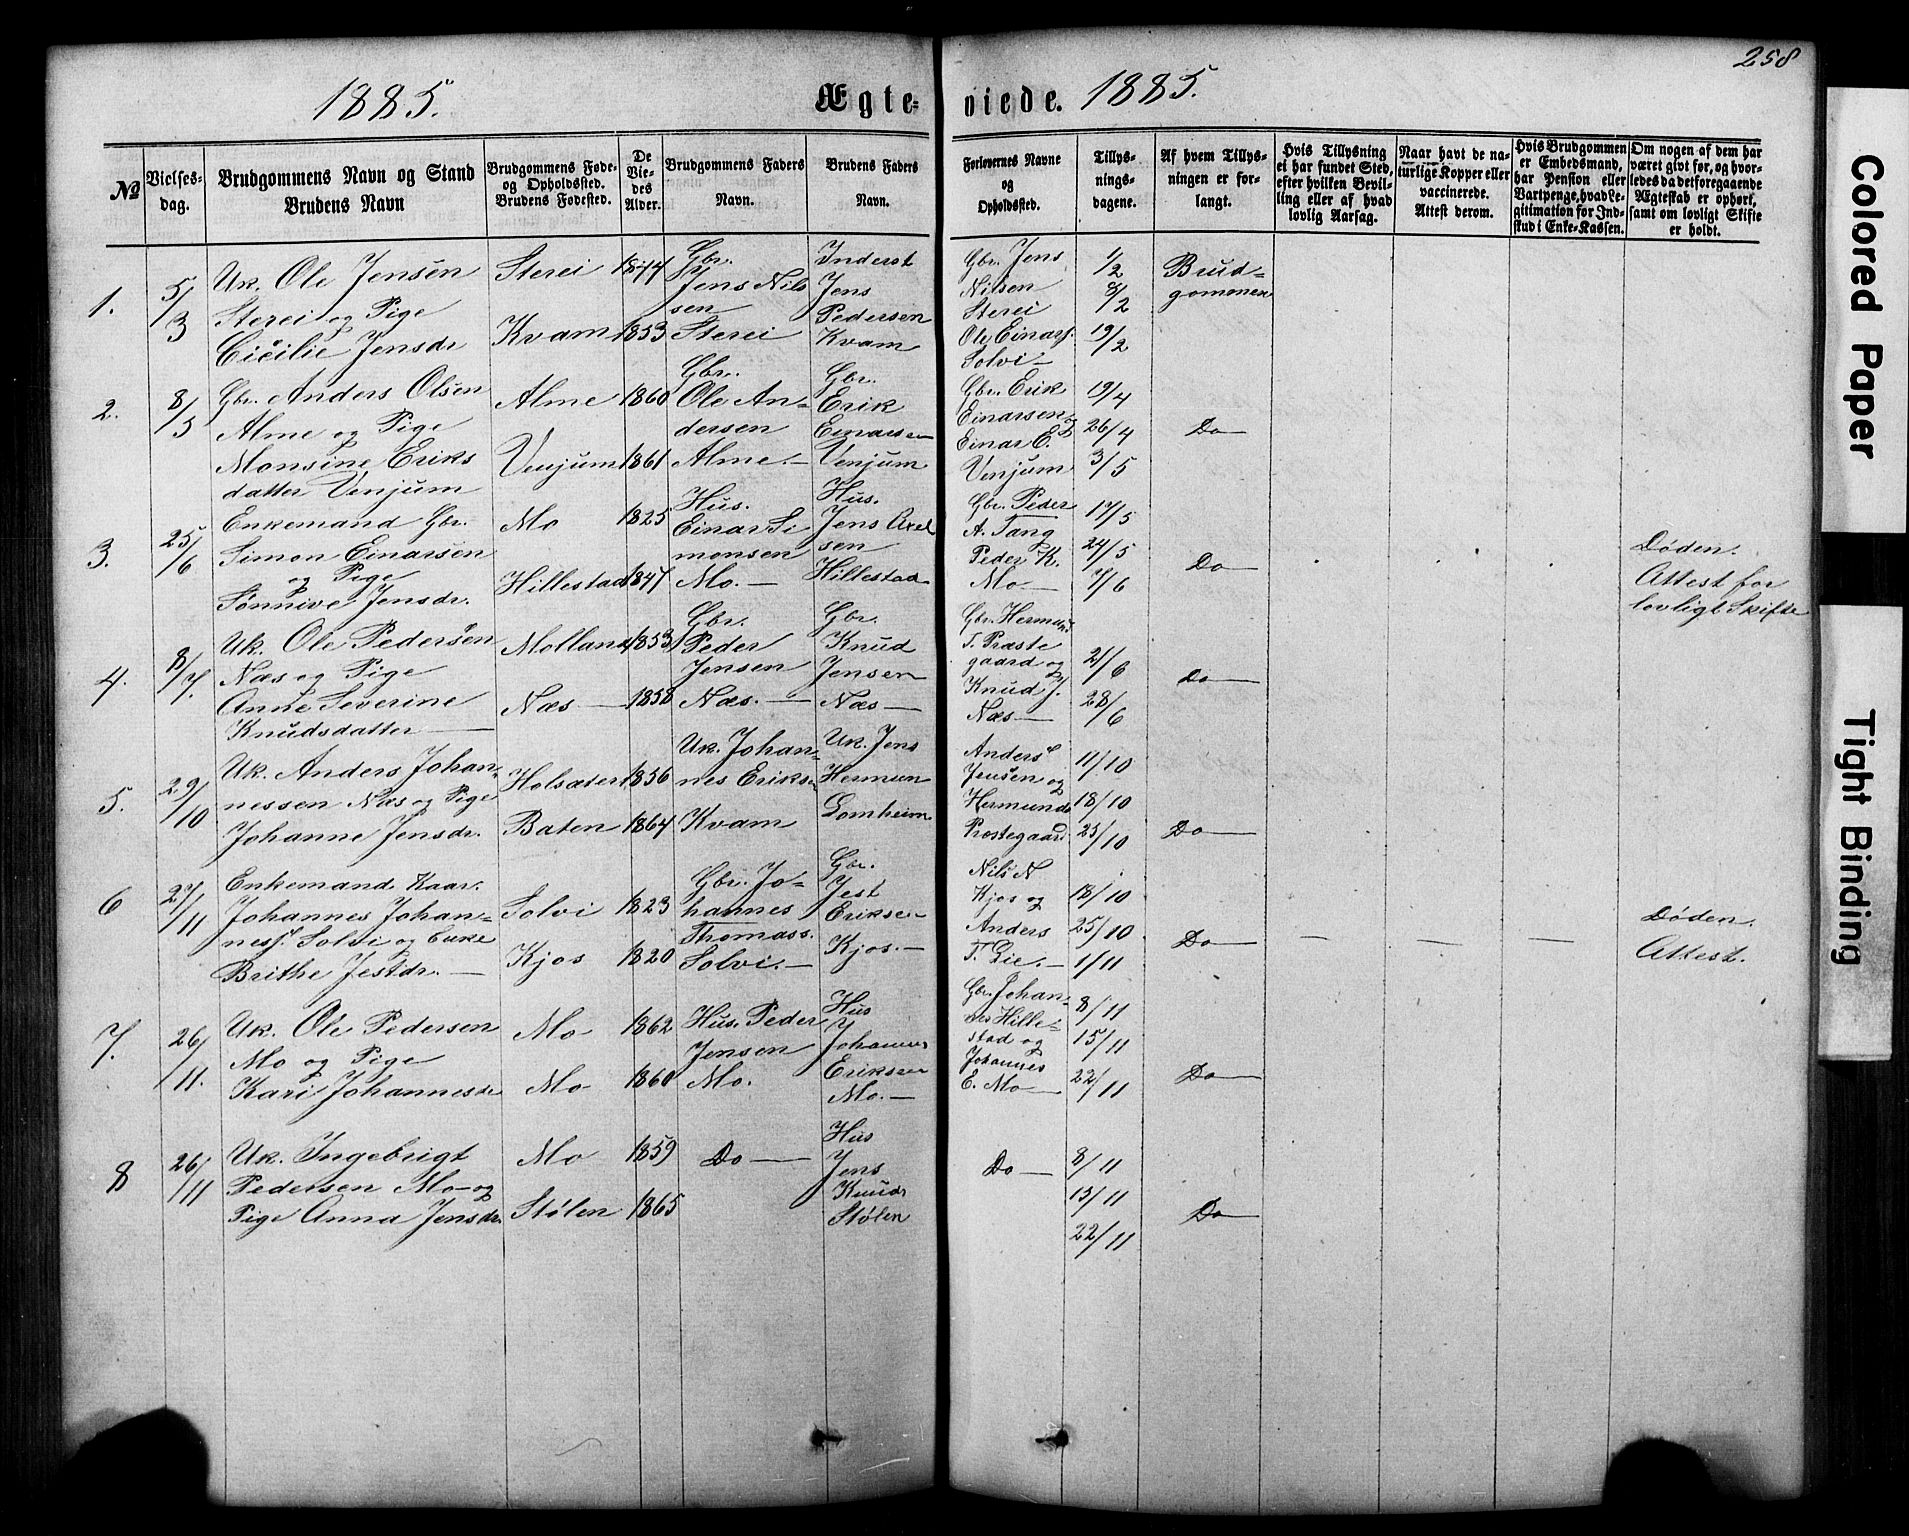 258
1885.
Ægte-
viede.
1885.
No
Vielses-
dag.
Brudgommens Navn og Stand
Brudens Navn
Brudgommens Føde-
og Opholdssted.
Brudens Fødested.
De
Vie-
des
Alder.
Brudgommens Faders
Navn.
Brudens Faders
Navn.
Forlovernes Navne
og
Opholdssted.
Tillys-
nings-
dagene.
Af hvem Tillys-
ningen er for-
langt.
Hvis Tillysning
ei har fundet Sted,
efter hvilken Bevil-
ling eller af hvad
lovlig Aarsag.
Naar havt de na-
turlige Kopper eller
vaccinerede.
Attest derom.
Hvis Brudgommen
er Embedsmand,
har Pension eller
Vartpenge, hvad Le-
gitimation for Ind-
skud i Enke-Kassen.
Om nogen af dem har
været givt før, og hvor-
ledes da det foregaaende
Ægteskab er ophørt,
samt om lovligt Skifte
er holdt.
1.
5/3
Uk. Ole Jensen
Sterei og Pige
Cicilie Jensdr
Sterei
Kvam
1844
1853
Gbr.
Jens Nils
sen
Sterei
Inderst
Jens
Pedersen
Kvam
Gbr. Jens
Nilsen
Sterei
Ole Einars.
Solvi
1/2
8/2
19/2
Brud-
gommen
2.
8/5
Gbr. Anders Olsen
Alme og Pige
Monsine Eriks
datter Venjum
Alme
Venjum
1860
1861
Gbr.
Ole An-
dersen
Alme.
Gbr.
Erik
Einarsen
Venjum
Gbr. Erik
Einarsen
Einar E.
Venjum
19/4
26/4
3/5
Do
3.
25/6
Enkemand Gbr.
Simon Einarsen
og Pige
Sønnive Jensdr.
Mo
Hillestad
1825
1847
Hus.
Einar Si
monsen
Mo.
Hus.
Jens Axel
sen
Hillestad
Gbr. Peder
A. Tang
Peder K.
Mo
17/5
24/5
7/6
Do
Døden.
Attest for
lovligt Skifte
4.
8/7.
Uk. Ole Pedersen
Næs og Pige
Anne Severine
Knudsdatter
Molland
Næs
1853
1858
Gbr.
Peder
Jensen
Næs.
Gbr.
Knud
Jensen
Næs
Gbr. Hermund
T. Præste
gaard og
Knud J.
Næs
21/6
28/6
Do
5.
29/10
Uk. Anders Johan-
nessen Næs og Pige
Johanne Jensdr.
Holsæter
Baten
1856
1864
Uk. Johan-
nes Eriksen
Kvam
Uk. Jens
Hermun
Lomheim
Anders
Jensen og
Hermund
Prestegaard
11/10
18/10
25/10
Do
6
27/11
Enkemand Kaar.
Johannes Johan-
nesf. Solvi og Enke
Brithe Jestdr.
Solvi
Kjos
1823
1820
Gbr. Jo-
hannes
Thomass.
Solvi.
Gbr.
Jest
Eriksen
Kjos.
Nils N
Kjos og
Anders
T. Lie.
18/10
25/10
1/11
Do
Døden.
Attest.
7.
26/11.
Uk. Ole Pedersen
Mo og Pige
Kari Johannesdr
Mo
Mo
1862
1860
Hus. Peder
Jensen
Mo.
Hus
Johannes
Eriksen
Mo.
Gbr. Johan-
nes Hille-
stad og
Johannes
E. Mo
8/11
15/11
22/11
Do
8
26/11
Uk. Ingebrigt
Pedersen Mo og
Pige Anna Jensdr.
Mo
Stølen
1859
1865
Do
Hus
Jens
Knuds
Stølen
Do
8/11
15/11
22/11
Do
Colored Paper
Tight Binding